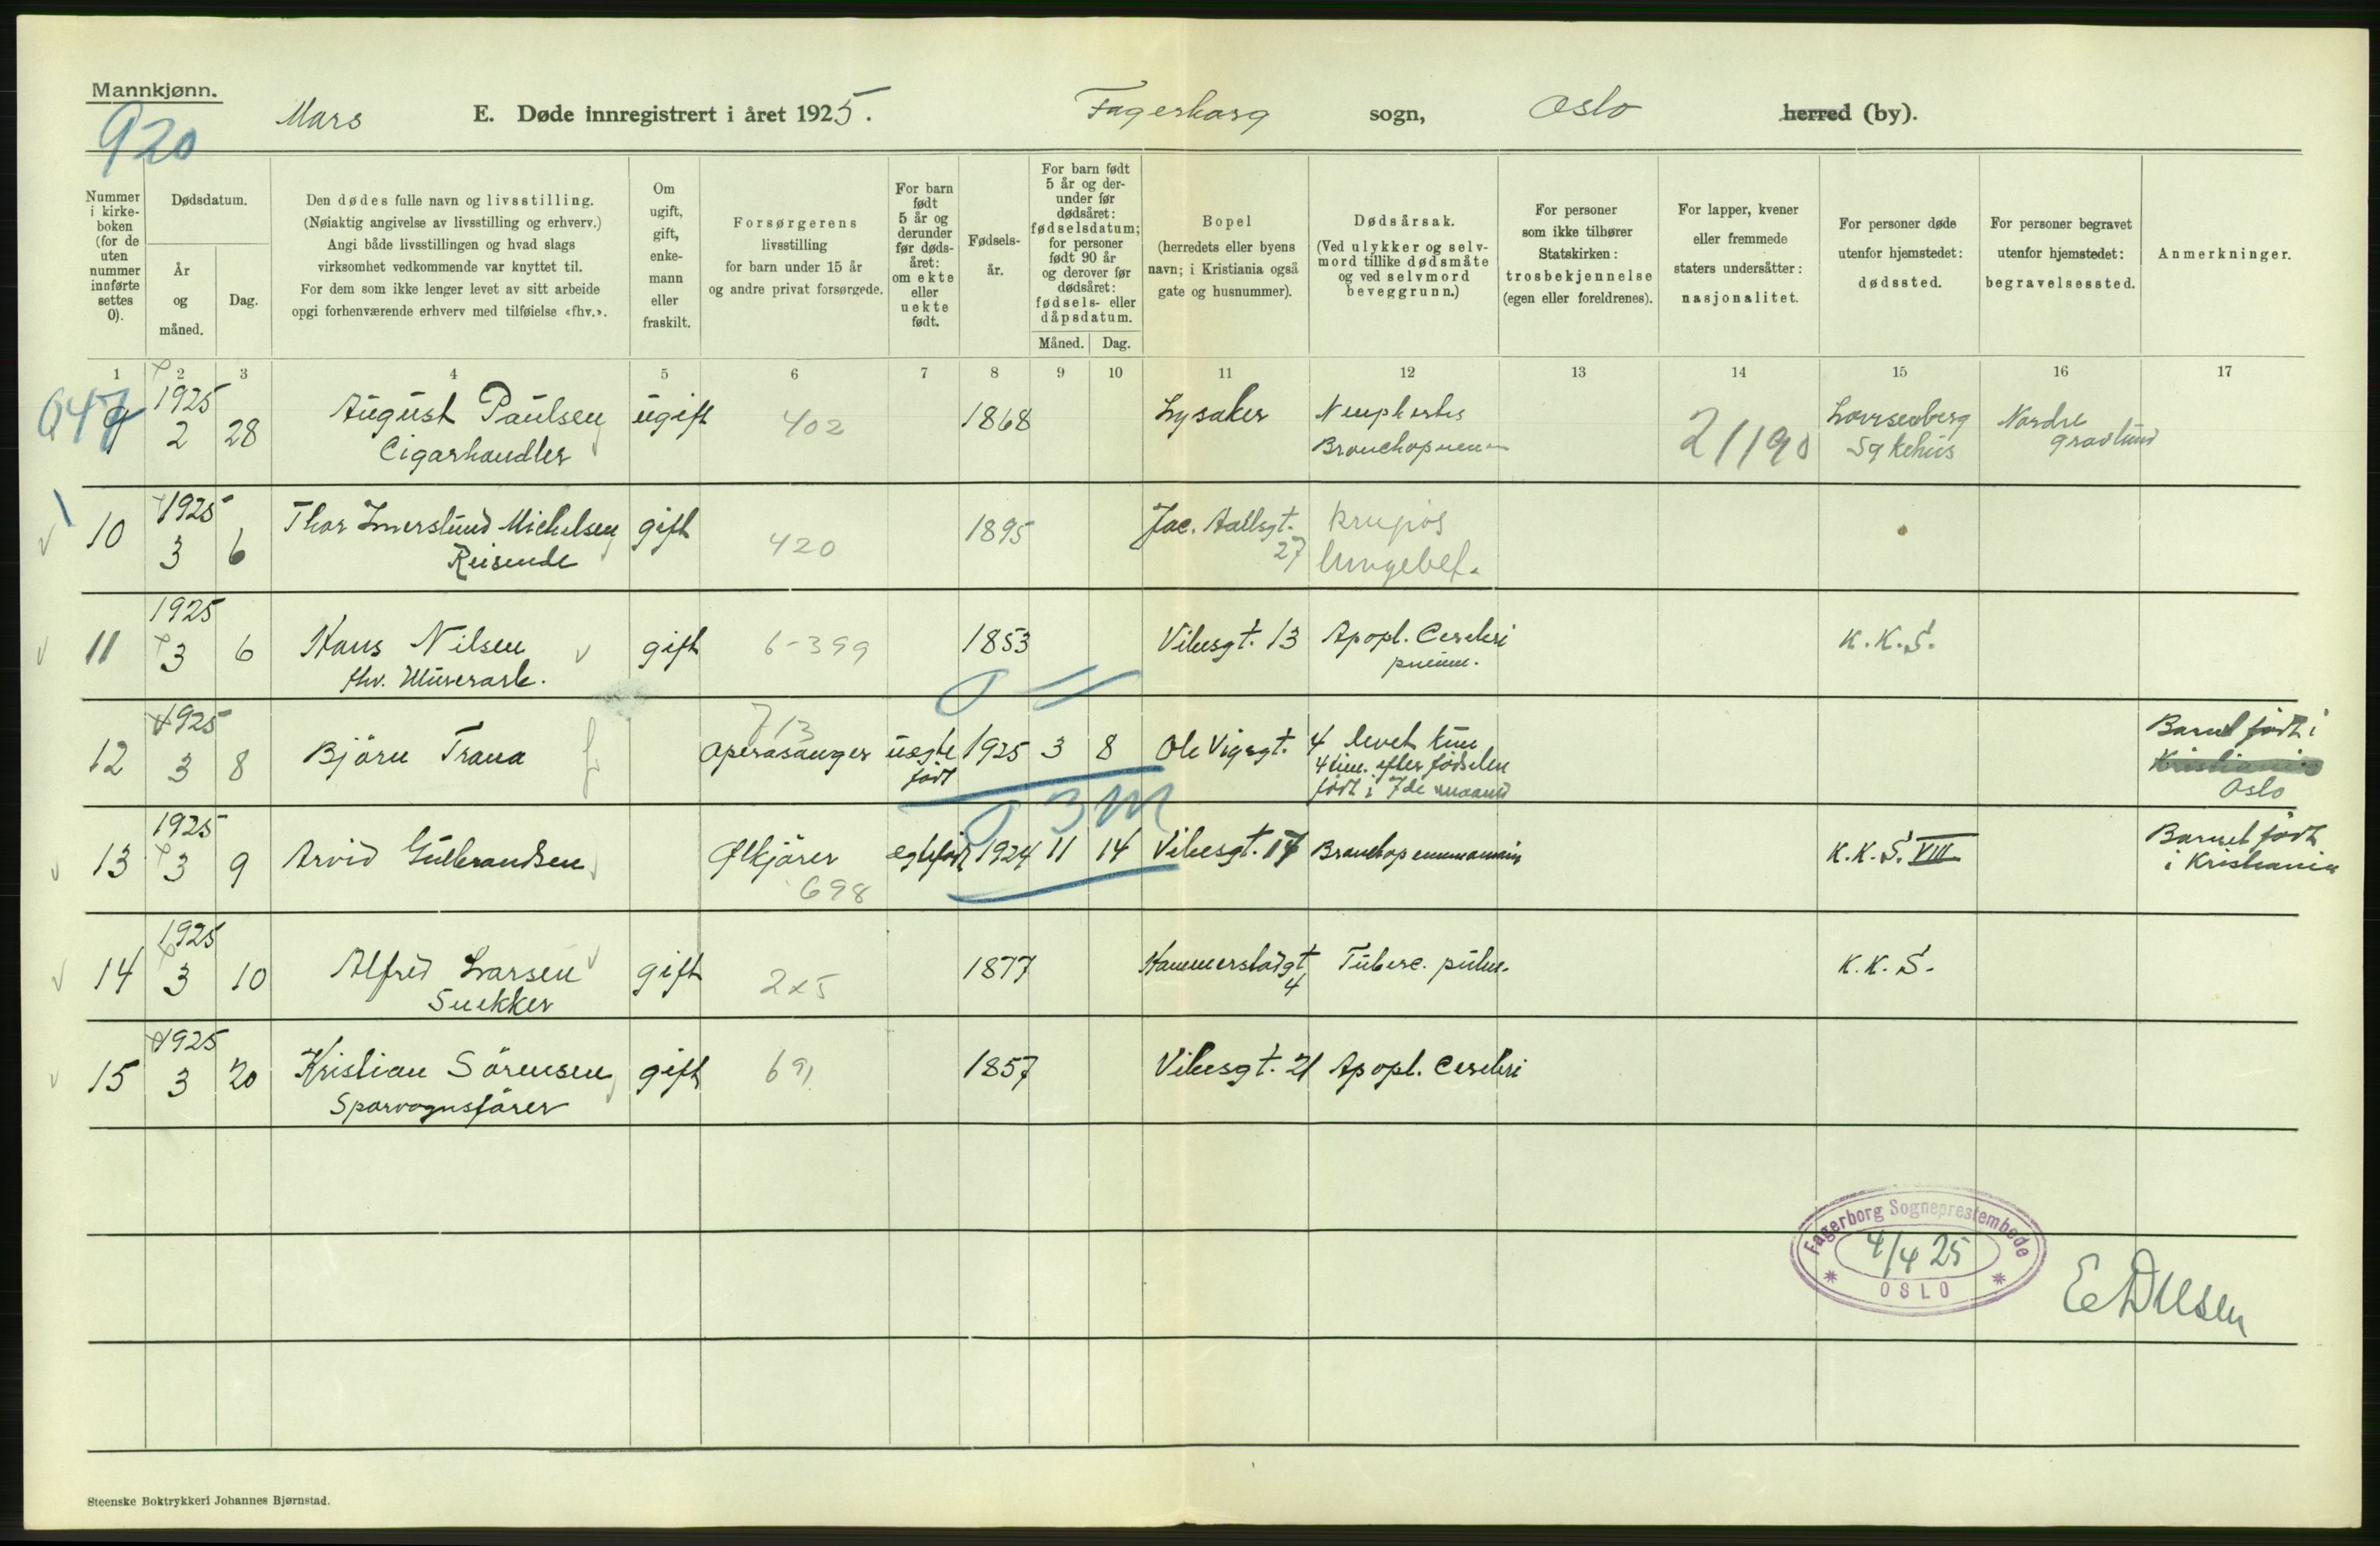 Mannkjønn.
920
Mars
E. Døde innregistrert i året 1925.
Fagerborg sogn, Oslo herred (by).
Nummer i kirkeboken (for de uten nummer innførte settes 0).
Dødsdatum.
År og måned.
Dag.
Den dødes fulle navn og livsstilling.
(Nøiaktig angivelse av livsstilling og erhverv.)
Angi både livsstillingen og hvad slags
virksomhet vedkommende var knyttet til.
For dem som ikke lenger levet av sitt arbeide
opgi forhenværende erhverv med tilføielse «fhv.».
Om ugift, gift, enkemann eller fraskilt.
Forsørgerens
livsstilling
for barn under 15 år
og andre privat forsørgede.
For barn født 5 år og derunder før dødsåret: om ekte eller uekte født.
Fødselsår.
For barn født 5 år og derunder før dødsåret: fødselsdatum; for personer født 90 år og derover før dødsåret: fødsels- eller dåpsdatum.
Måned. Dag.
Bopel
(herredets eller byens
navn; i Kristiania også
gate og husnummer).
Dødsårsak.
(Ved ulykker og selvmord tillike dødsmåte
og ved selvmord
beveggrunn.)
For personer
som ikke tilhører
Statskirken:
trosbekjennelse
(egen eller foreldrenes).
For lapper, kvener
eller fremmede
staters undersåtter:
nasjonalitet.
For personer døde
utenfor hjemstedet:
dødssted.
For personer begravet
utenfor hjemstedet:
begravelsessted.
Anmerkninger.
1 2 3 4 5 6 7 8 9 10 11 12 13 14 15 16 17
9 1925 2 28 August Paulsen ugift 402 1868 Lysaker
Cigarhandler Bronchopneum 21190 Sykehus Nordre gravlund
10 1925 3 6 Thor Imerslund Michelsen gift 420 1895 Jac. Aallsgt. 27 krupøs
Reisende lungebet.
11 1925 3 6 Hans Nilsen gift 6-399 1853 Vibesgt. 13 Apopl. Cerebri K.K.S.
fhv. Murerarb. pneum.
713
12 1925 3 8 Björn Trana Operasanger uegte født 1925 3 8 Ole Vigsgt. 4 levet kun
4 tim. efter fødselen
født i 7de maaned
Barnet født i
Kristiania
Oslo
3 M
13 1925 3 9 Arvid Gulbrandsen Ølkjører egtefødt 1924 11 14 Vibesgt. 17 Bronchopneumonia K.K.S. VIII Barnet født
698 i Kristiania
14 1925 3 10 Alfred Larsen gift 2x5 1877 Hammerstadgt 4 Tuberc. pulm. K.K.S.
Snekker
15 1925 3 20 Kristian Sörensen gift 691 1857 Vibesgt. 21 Apopl. Cerebri
Sporvognsfører
Fagerborg Sogneprestembede
4/4 25
OSLO
Steenske Boktrykkeri Johannes Bjørnstad.